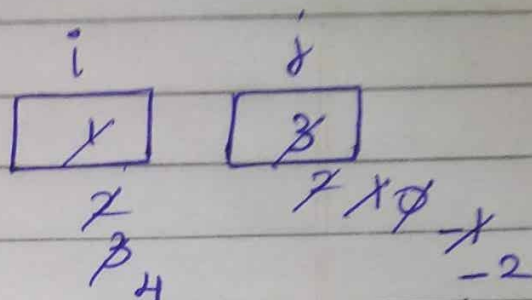 i j
1 3
2 2 1 0 -1
3 4 -2